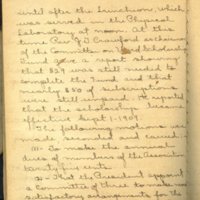 until after the luncheon, which
was served in the Physical
Laboratory at noon. At this
time Carl G Crawford
the Committee on Scholarship
Fund gave a report
that $29 was still needed to
complete the Fund and that
nearly $50 of subscriptions
were still unpaid. It reports
that the scholarship became
effective Sept 1-1909
The following motions were
made seconded and carried:
(1) To make the annual
dues of members of the Association
twenty five cents.
(2) That the President appoint
a Committee of Three to make
satisfactory arrangements for the